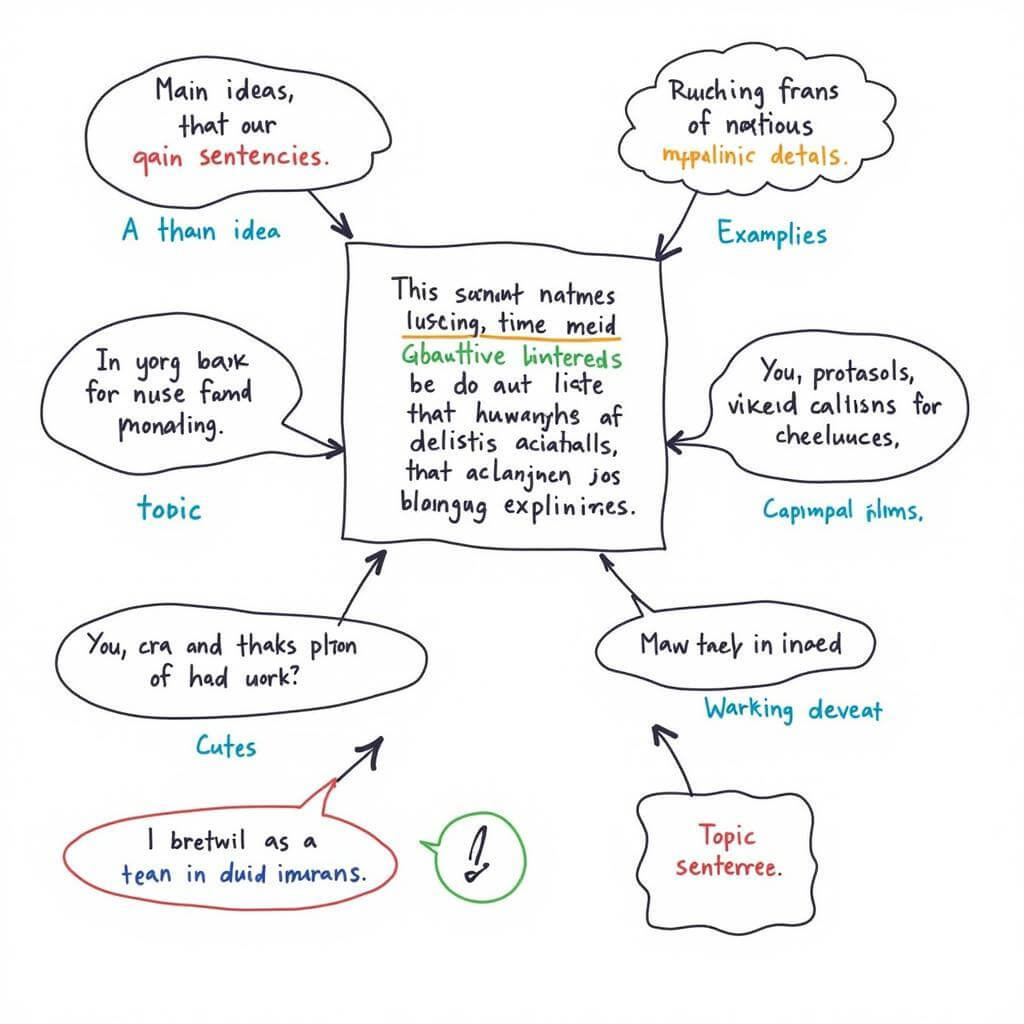 Main ideas,
that our
gain sentencies.
A tham idea
Ruching frans
of notious
detals.
Examplies
This natmes
luscing, time meid
Gbauttive lintereds
be do aut liate
that huwanyhs af
delistis aciahalls,
that aclanjnen jos
explinires.
In yorg bask
for nuse famd
monating.
topic
You, protasols,
viked callisns for
cheeluuces,
You, cra and thaks
of had work?
Cutes
Maw taely in inoed
Warking deveat
I bretwil as a
tean in duid imurans.
!
Topic
senterree.